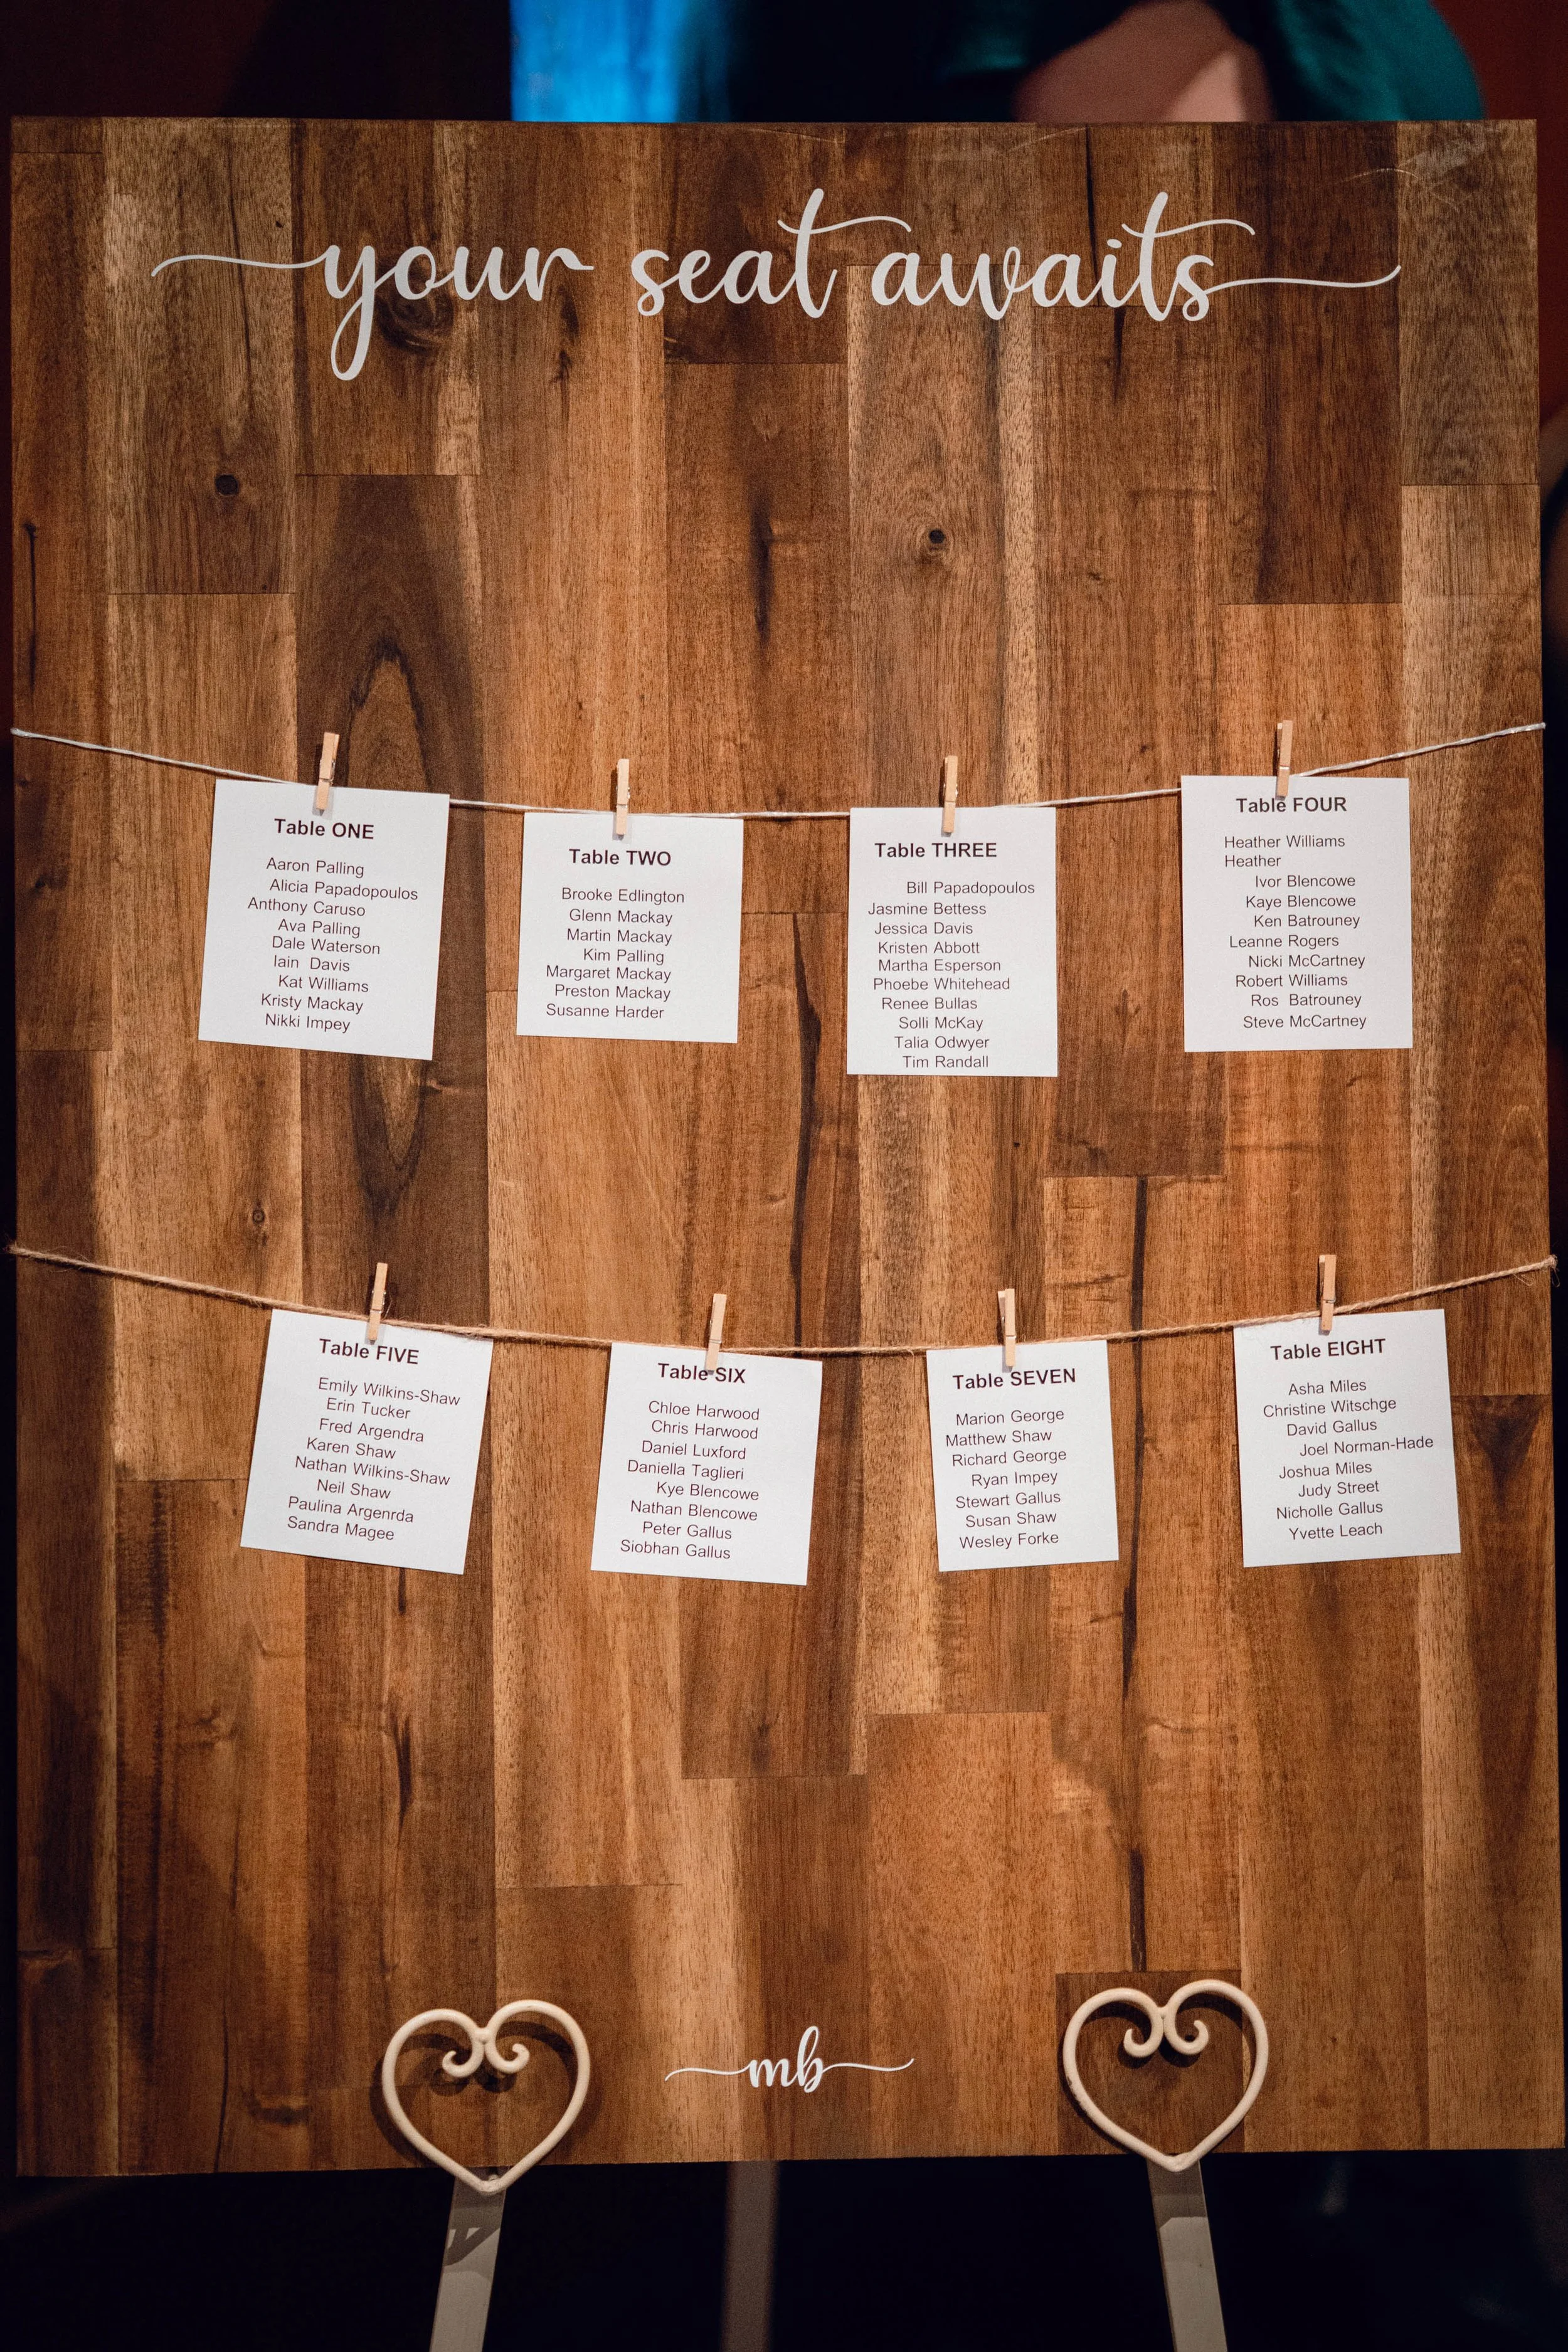 your seat awaits
Table ONE
Aaron Palling
Alicia Papadopoulos
Anthony Caruso
Ava Palling
Dale Waterson
Iain Davis
Kat Williams
Kristy Mackay
Nikki Impey
Table TWO
Brooke Edlington
Glenn Mackay
Martin Mackay
Kim Palling
Margaret Mackay
Preston Mackay
Susanne Harder
Table THREE
Bill Papadopoulos
Jasmine Bettess
Jessica Davis
Kristen Abbott
Martha Esperson
Phoebe Whitehead
Renee Bullas
Solli McKay
Talia Odwyer
Tim Randall
Table FOUR
Heather Williams
Heather
Ivor Blencowe
Kaye Blencowe
Ken Batrouney
Leanne Rogers
Nicki McCartney
Robert Williams
Ros Batrouney
Steve McCartney
Table FIVE
Emily Wilkins-Shaw
Erin Tucker
Fred Argendra
Karen Shaw
Nathan Wilkins-Shaw
Neil Shaw
Paulina Argenrda
Sandra Magee
Table SIX
Chloe Harwood
Chris Harwood
Daniel Luxford
Daniella Taglieri
Kye Blencowe
Nathan Blencowe
Peter Gallus
Siobhan Gallus
Table SEVEN
Marion George
Matthew Shaw
Richard George
Ryan Impey
Stewart Gallus
Susan Shaw
Wesley Forke
Table EIGHT
Asha Miles
Christine Witschge
David Gallus
Joel Norman-Hade
Joshua Miles
Judy Street
Nicholle Gallus
Yvette Leach
mb